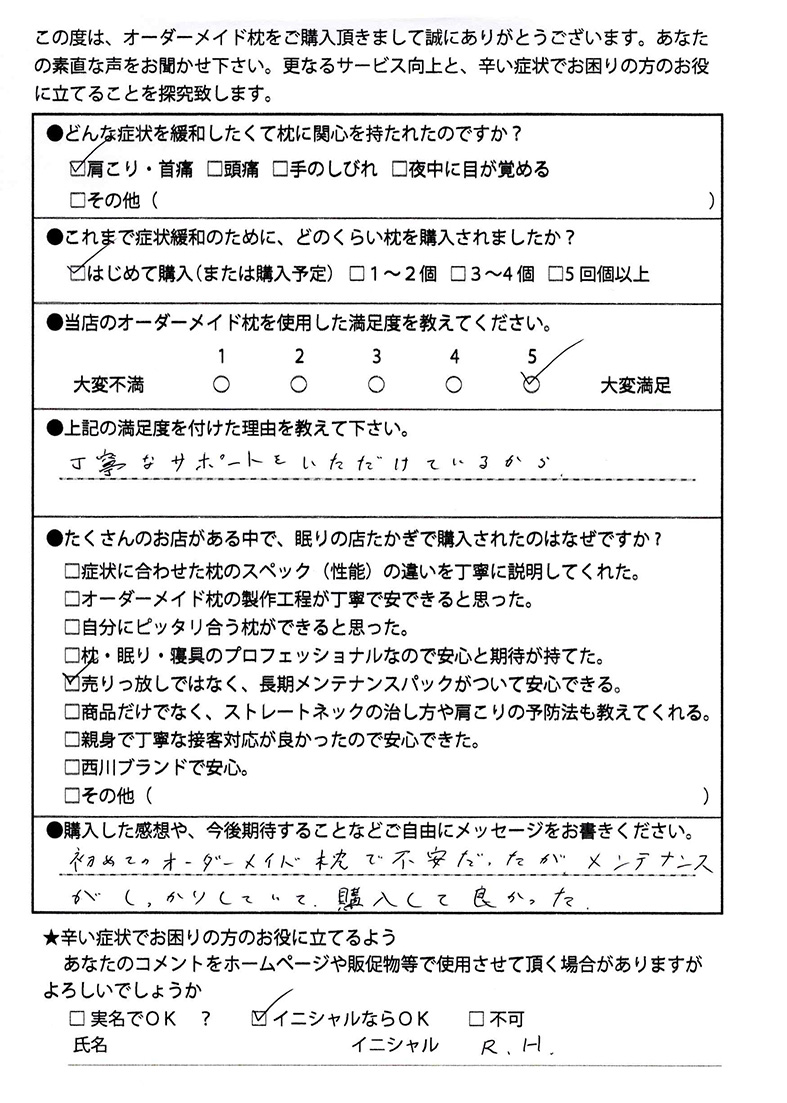 この度は、オーダーメイド枕をご購入頂きまして誠にありがとうございます。あなた
の素直な声をお聞かせ下さい。更なるサービス向上と、辛い症状でお困りの方のお役
に立てることを探究致します。
●どんな症状を緩和したくて枕に関心を持たれたのですか？
☑肩こり・首痛 □頭痛 □手のしびれ □夜中に目が覚める
□その他（ ）
●これまで症状緩和のために、どのくらい枕を購入されましたか？
☑はじめて購入（または購入予定） □１～２個 □３～４個 □５回個以上
●当店のオーダーメイド枕を使用した満足度を教えてください。
1 2 3 4 5
大変不満 ○ ○ ○ ○ ○ 大変満足
●上記の満足度を付けた理由を教えて下さい。
丁寧なサポートをいただけているから.
●たくさんのお店がある中で、眠りの店たかぎで購入されたのはなぜですか？
□症状に合わせた枕のスペック（性能）の違いを丁寧に説明してくれた。
□オーダーメイド枕の製作工程が丁寧で安できると思った。
□自分にピッタリ合う枕ができると思った。
□枕・眠り・寝具のプロフェッショナルなので安心と期待が持てた。
☑売りっ放しではなく、長期メンテナンスパックがついて安心できる。
□商品だけでなく、ストレートネックの治し方や肩こりの予防法も教えてくれる。
□親身で丁寧な接客対応が良かったので安心できた。
□西川ブランドで安心。
□その他（ ）
●購入した感想や、今後期待することなどご自由にメッセージをお書きください。
初めてのオーダーメイド枕で不安だったが、メンテナンス
がしっかりしていて、購入して良かった.
★辛い症状でお困りの方のお役に立てるよう
あなたのコメントをホームページや販促物等で使用させて頂く場合がありますが
よろしいでしょうか
□ 実名でＯＫ ？ ☑イニシャルならＯＫ □ 不可
氏名 イニシャル R.H.